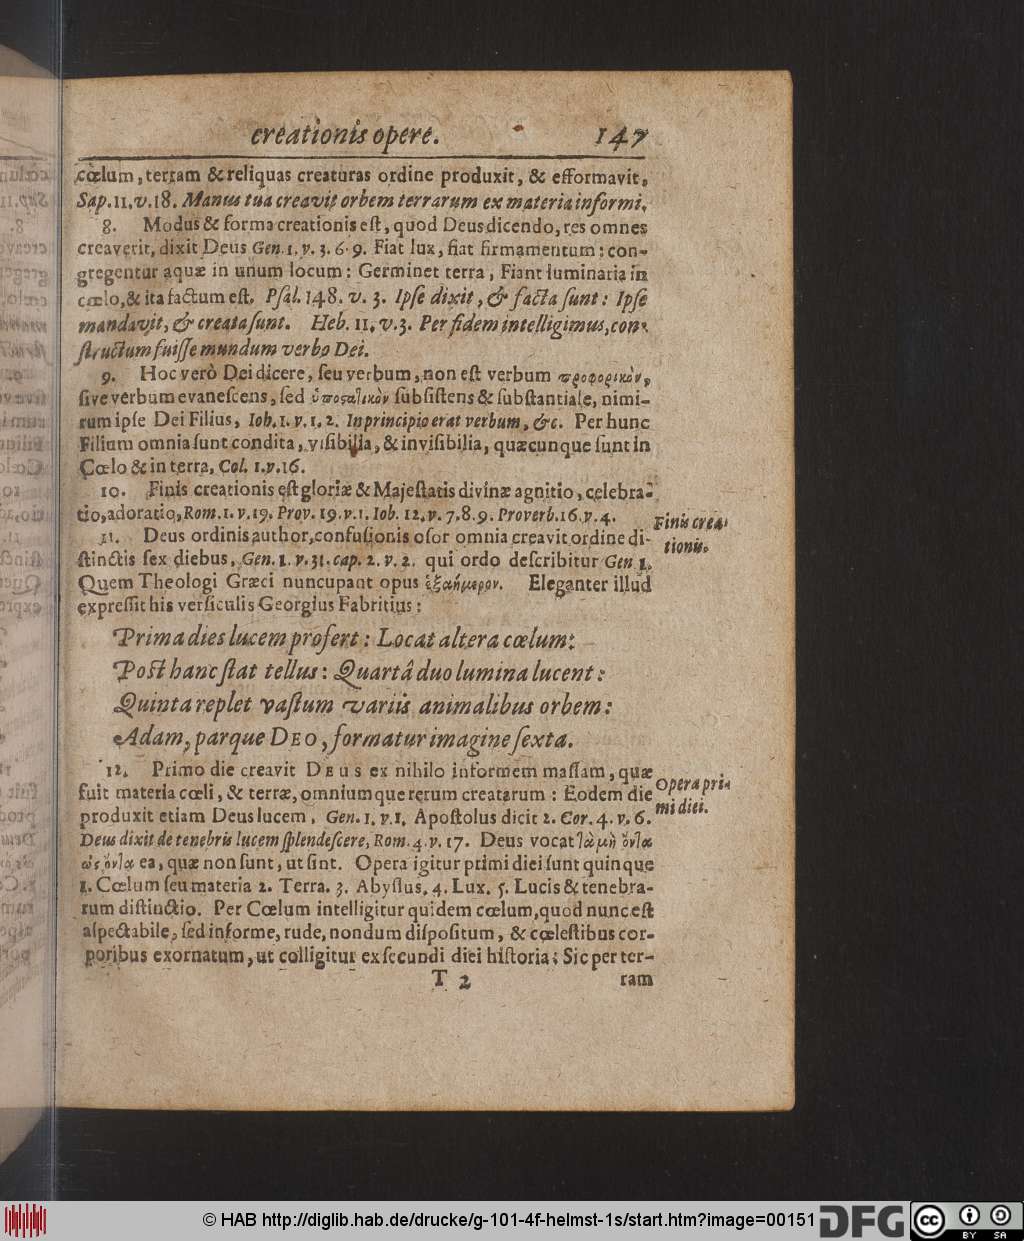 creationis opere. 147
cœlum, terram & reliquas creaturas ordine produxit, & efformavit,
Sap. 11. v. 18. Manus tua creavit orbem terrarum ex materia informi.
8. Modus & forma creationis eſt, quod Deus dicendo, res omnes
creaverit, dixit Deus Gen. 1. v. 3. 6. 9. Fiat lux, fiat firmamentum: con-
gregentur aquæ in unum locum: Germinet terra, Fiant luminaria in
cœlo, & ita factum eſt. Pſal. 148. v. 3. Ipſe dixit, & facta ſunt: Ipſe
mandavit, & creata ſunt. Heb. 11. v. 3. Per fidem intelligimus, con-
ſtructum fuiſſe mundum verbo Dei.
9. Hoc verò Dei dicere, ſeu verbum, non eſt verbum προφορικὸν,
ſive verbum evaneſcens, ſed ὑποςατικὸν ſubſiſtens & ſubſtantiale, nimi-
rum ipſe Dei Filius, Ioh. 1. v. 1. 2. In principio erat verbum, &c. Per hunc
Filium omnia ſunt condita, viſibilia, & inviſibilia, quæcunque ſunt in
Cœlo & in terra, Col. 1. v. 16.
10. Finis creationis eſt gloriæ & Majeſtatis divinæ agnitio, celebra-
tio, adoratio, Rom. 1. v. 19. Prov. 19. v. 1. Iob. 12. v. 7. 8. 9. Proverb. 16. v. 4.
Finis crea-
tionis.
11. Deus ordinis author, confuſionis oſor omnia creavit ordine di-
ſtinctis ſex diebus, Gen. 1. v. 31. cap. 2. v. 2. qui ordo deſcribitur Gen 1.
Quem Theologi Græci nuncupant opus ἑξαήμερον. Eleganter illud
expreſſit his verſiculis Georgius Fabritius:
Prima dies lucem profert: Locat altera cœlum:
Poſt hanc ſtat tellus: Quartâ duo lumina lucent:
Quinta replet vaſtum variis animalibus orbem:
Adam, parque DEO, formatur imagine ſexta.
12. Primo die creavit DEUS ex nihilo informem maſſam, quæ
fuit materia cœli, & terræ, omniumque rerum creatarum: Eodem die
Opera pri-
mi diei.
produxit etiam Deus lucem, Gen. 1. v. 1. Apoſtolus dicit 2. Cor. 4. v. 6.
Deus dixit de tenebris lucem ſplendeſcere, Rom. 4. v. 17. Deus vocat τὰ μὴ ὄντα
ὡς ὄντα ea, quæ non ſunt, ut ſint. Opera igitur primi diei ſunt quinque
1. Cœlum ſeu materia 2. Terra. 3. Abyſſus. 4. Lux. 5. Lucis & tenebra-
rum diſtinctio. Per Cœlum intelligitur quidem cœlum, quod nunc eſt
aſpectabile, ſed informe, rude, nondum diſpoſitum, & cœleſtibus cor-
poribus exornatum, ut colligitur ex ſecundi diei hiſtoria; Sic per ter-
T 2 ram
© HAB http://diglib.hab.de/drucke/g-101-4f-helmst-1s/start.htm?image=00151 DFG cc BY SA